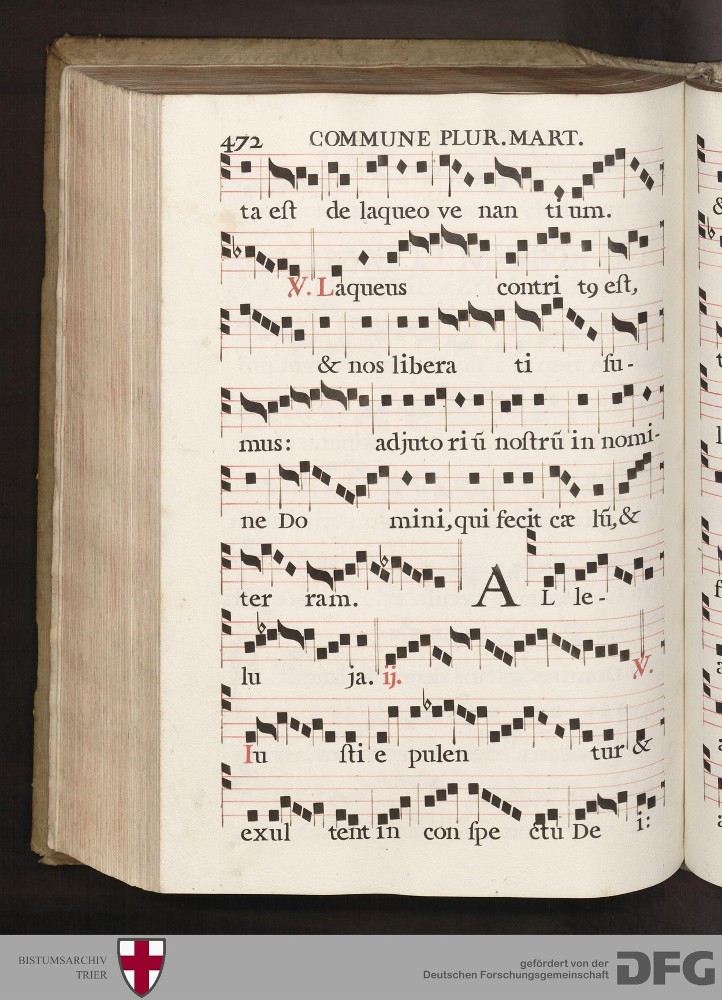 472 COMMUNE PLUR. MART.
ta eſt de laqueo ve nan ti um.
℣. Laqueus contri tꝰ eſt,
& nos libera ti ſu-
mus: adjuto ri ū noſtrū in nomi-
ne Do mini, qui fecit cæ lū, &
ter ram. AL le-
lu ja. ij. ℣.
Iu ſti e pulen tur &
exul tent in con ſpe ctu De i:
BISTUMSARCHIV
TRIER
gefördert von der
Deutschen Forschungsgemeinschaft
DFG